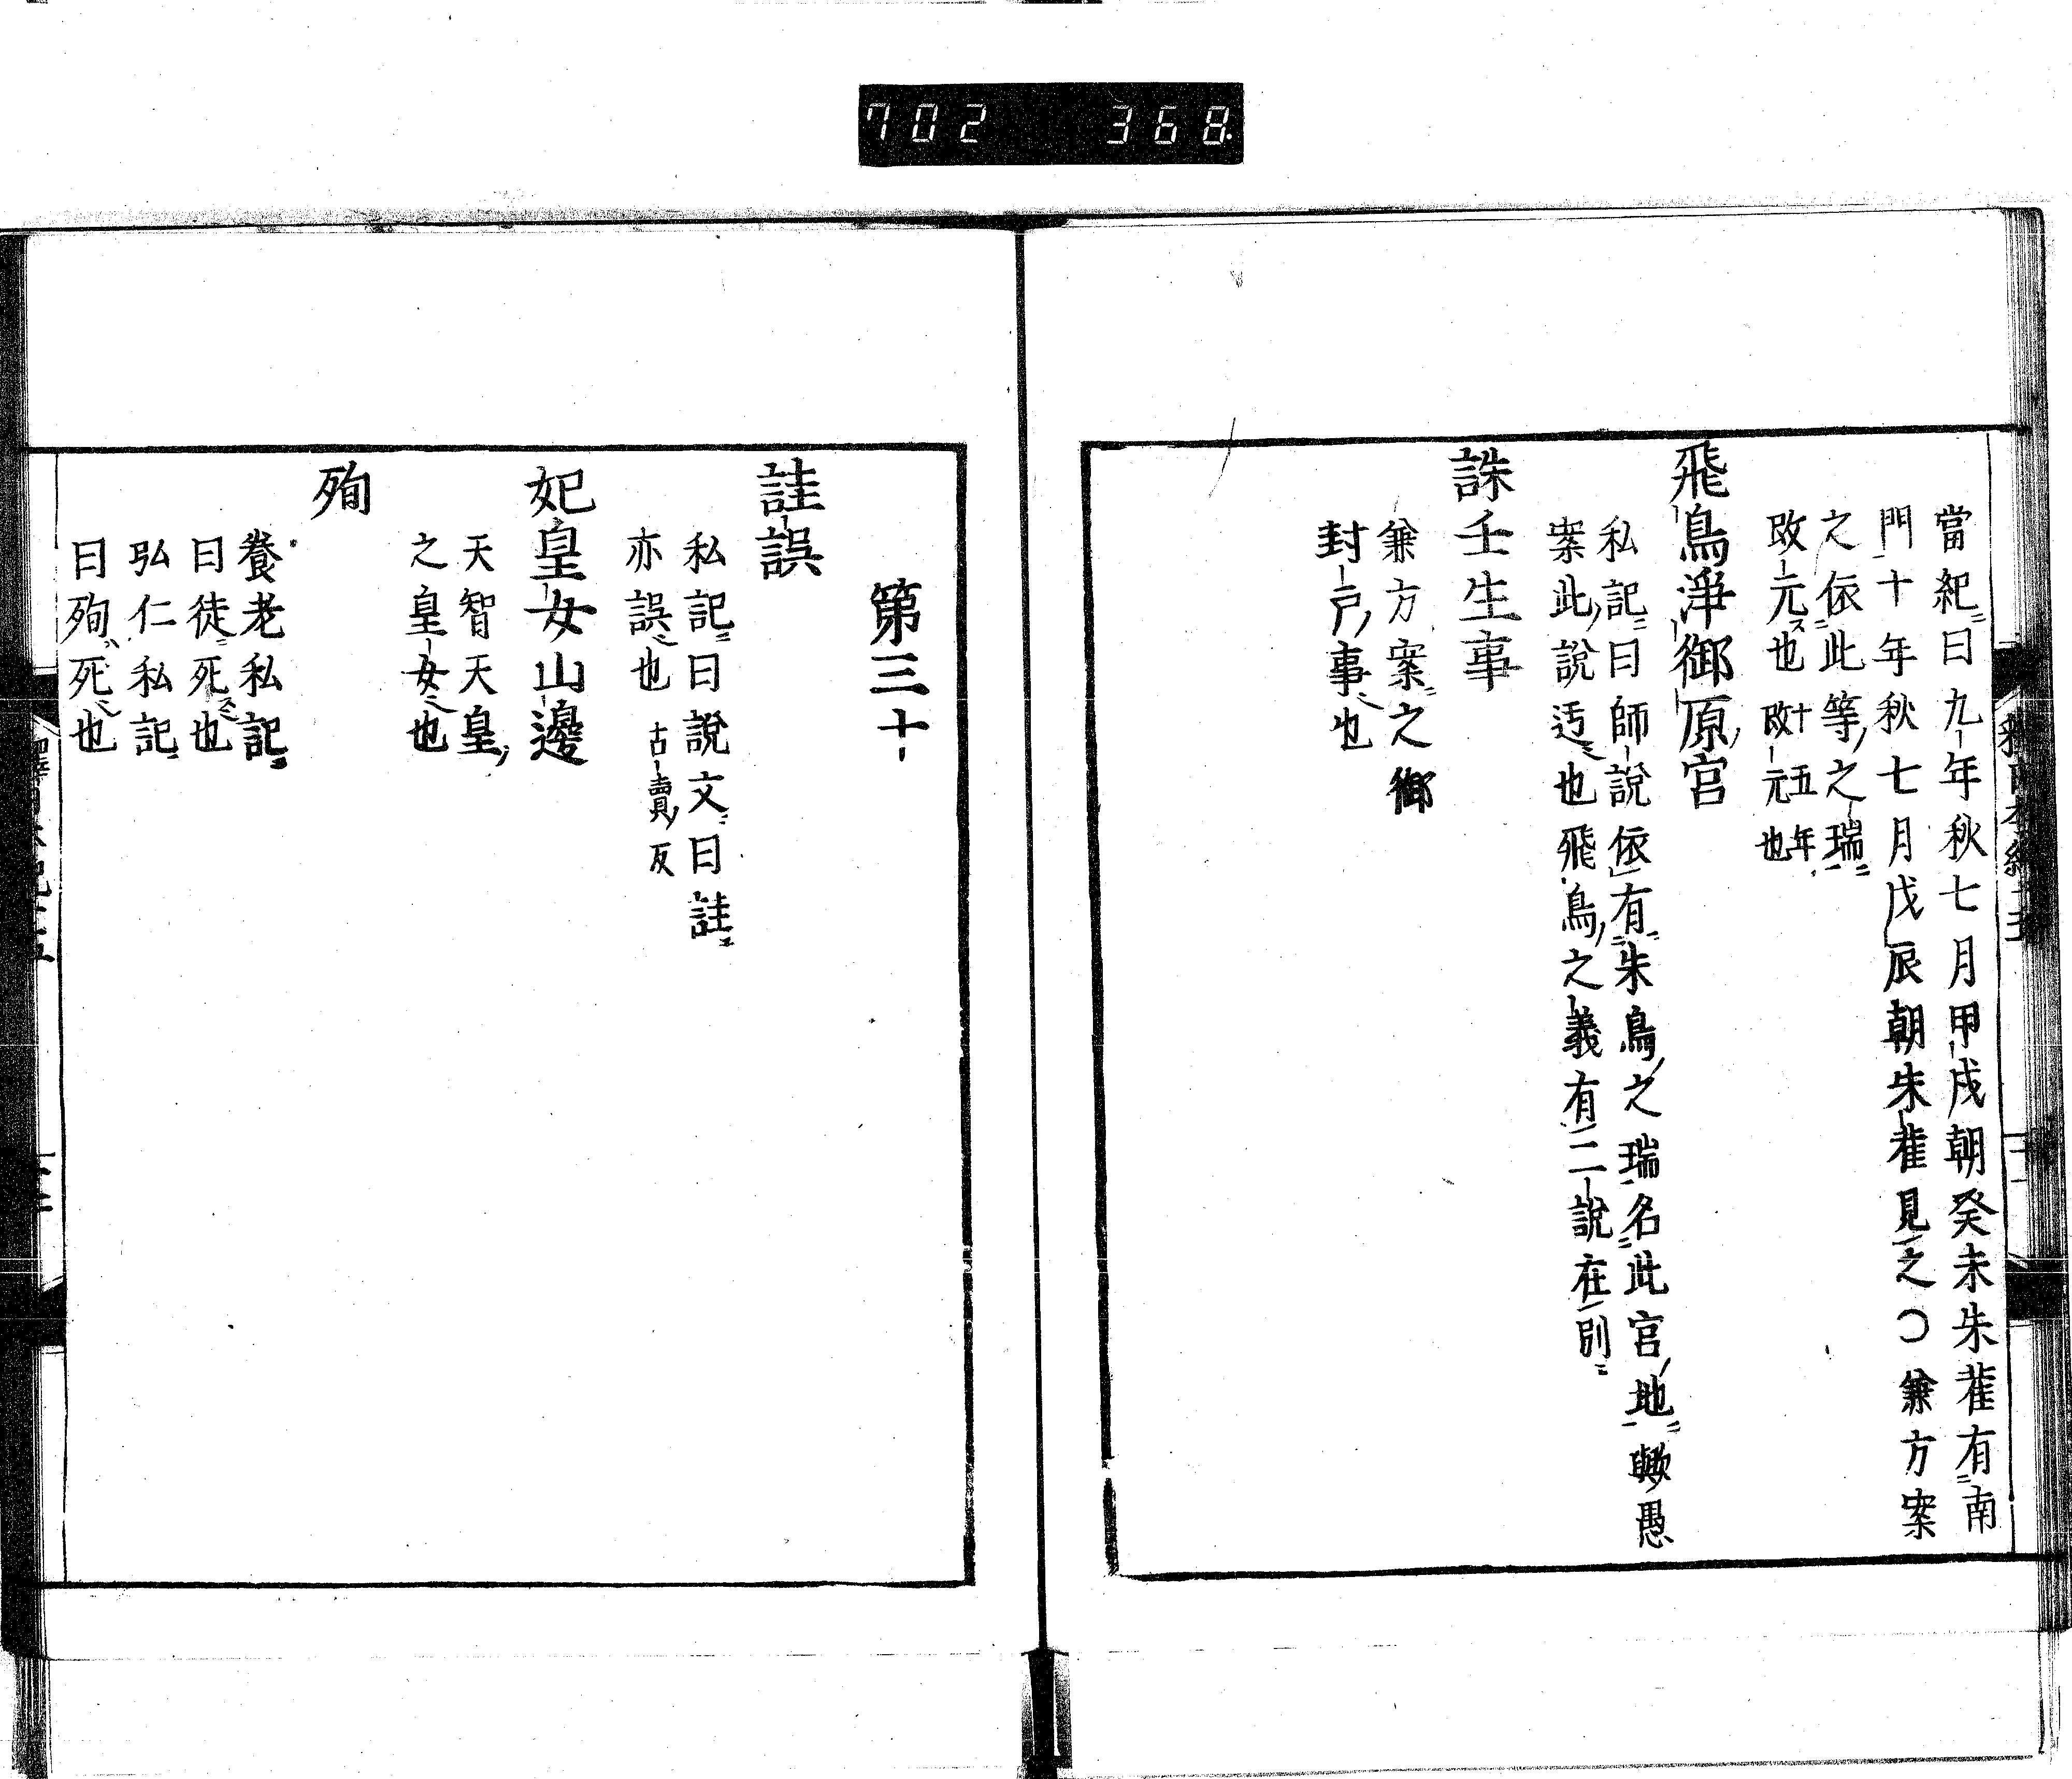 702 368
當紀曰九年秋七月甲戌朝癸未朱雀有南
門十年秋七月戊辰朝朱雀見之〇兼方案
之依此等之瑞
改元也十五年改元也
飛鳥淨御原宮
私記曰師說依有朱鳥之瑞名此官地歟愚
案此說迃也飛鳥之義有二說在別
誅壬生事
兼方案之御
封戶事也
第三十
詿誤
私記曰說文曰詿
亦誤也古賣反
妃皇女山邊
天智天皇
之皇女也
殉
養老私記
曰徒死也
弘仁私記
曰殉死也